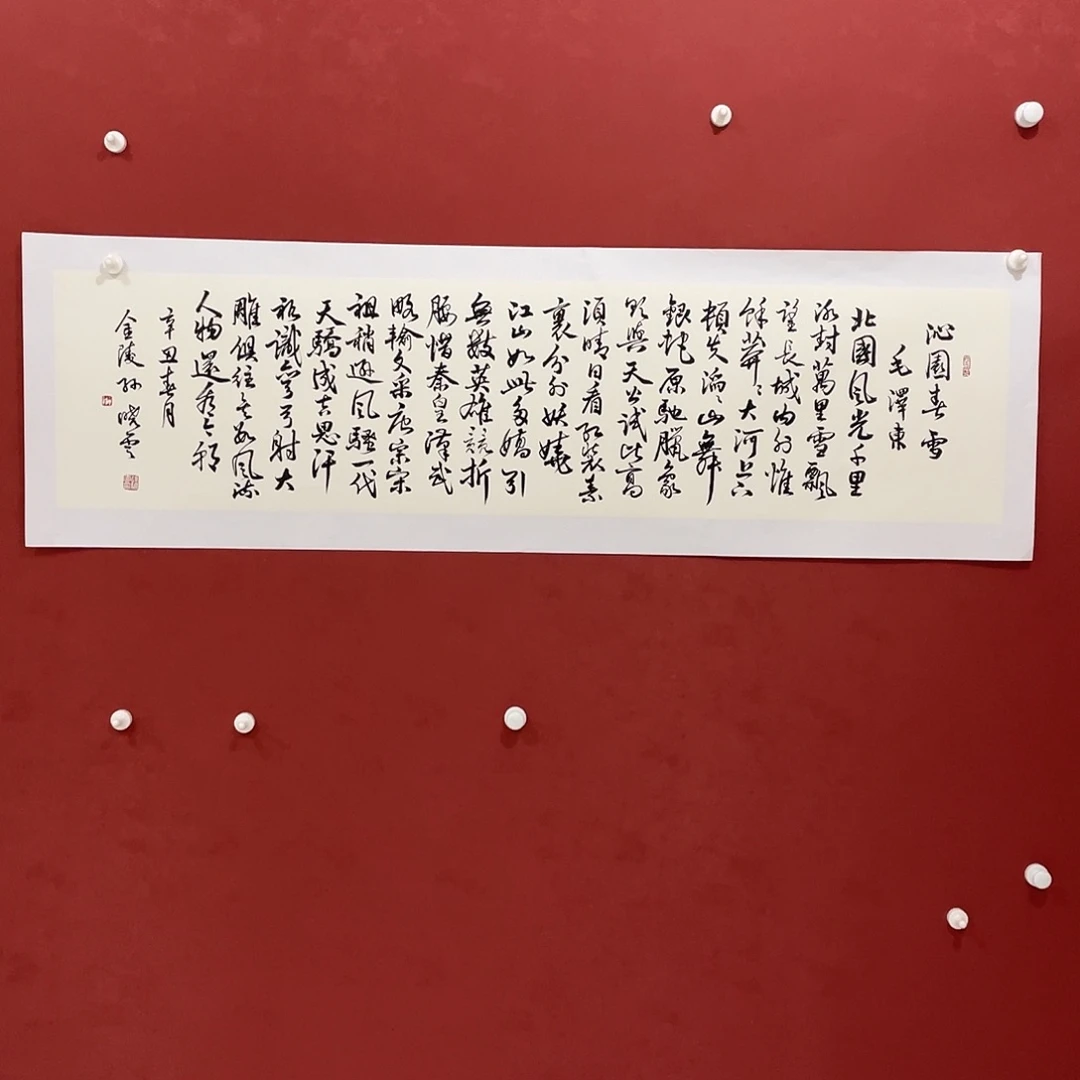 沁園春雪
毛澤東
北國風光千里
冰封萬里雪飄
望長城內外惟
餘莽〻大河上下
頓失滔〻山舞
銀蛇原馳臘象
欲與天公試比高
須晴日看紅裝素
裹分外妖嬈
江山如此多嬌引
無數英雄競折
腰惜秦皇漢武
略輸文采唐宗宋
祖稍遜風騷一代
天驕成吉思汗
衹識彎弓射大
雕俱往矣數風流
人物還看今朝
辛丑春月
金陵孫曉雲